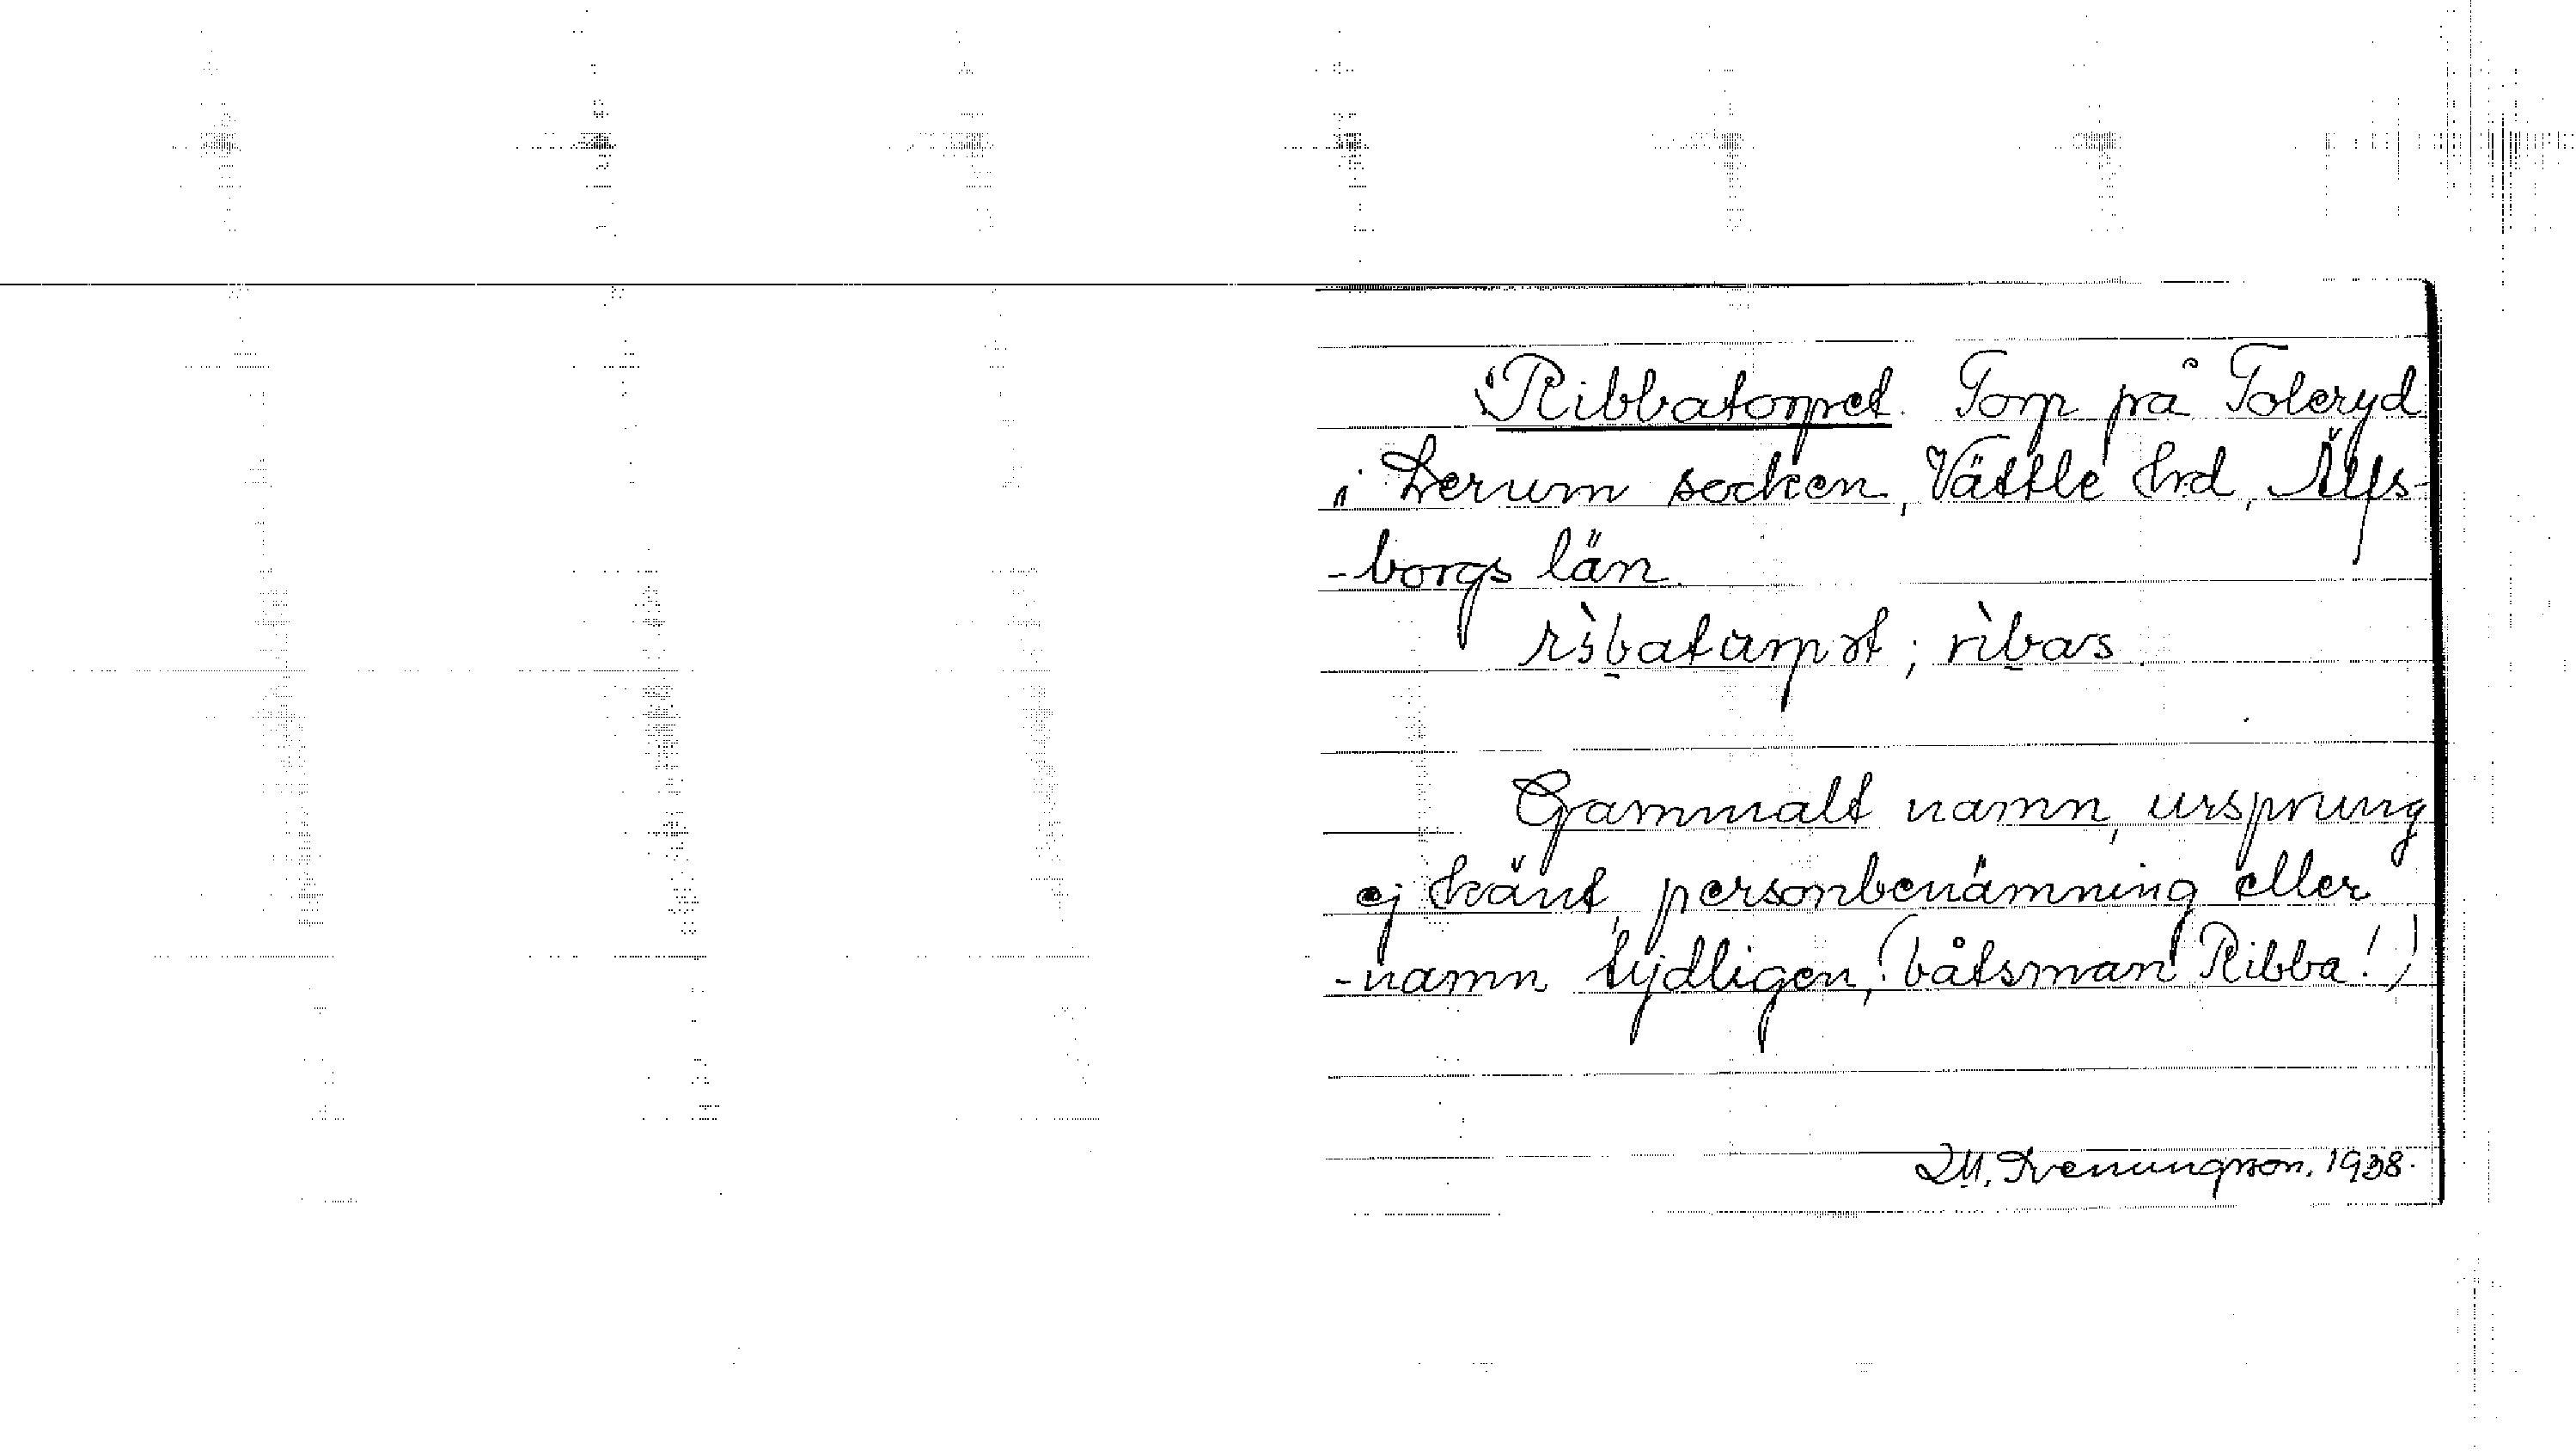 Ribbatorpet. Torp på Toleryd
i Lerum socken, Vättle hrd, Älfs-
-borgs län.
ribatarpət; ribas.
Gammalt namn, ursprung
ej känt, personbenämning eller
-namn tydligen, (båtsman Ribba!)
1938.